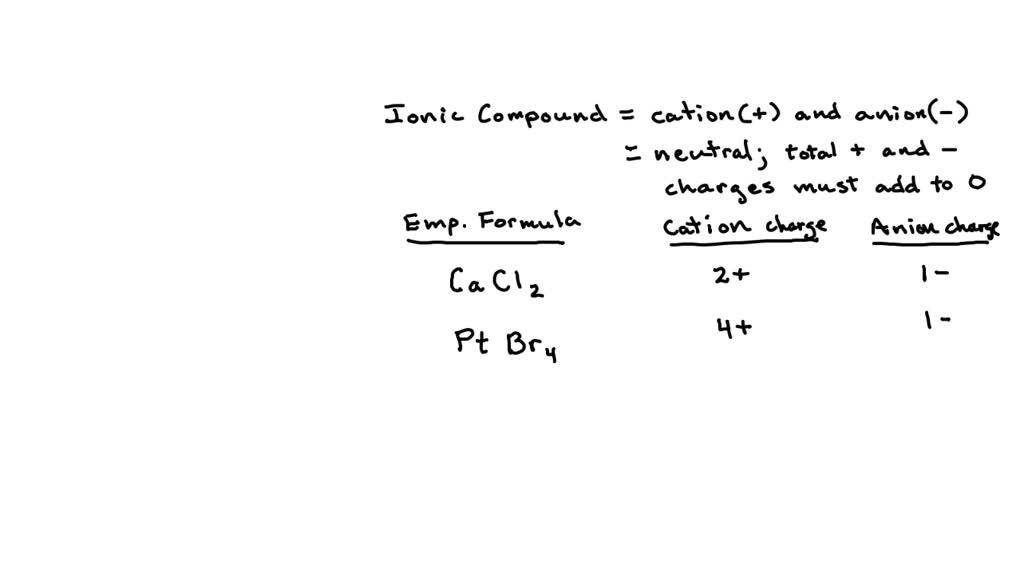 Ionic Compound = cation(+) and anion(-)
= neutral; total + and -
charges must add to 0
Emp. Formula Cation charge Anion charge
CaCl₂ 2+ 1-
PtBr₄ 4+ 1-